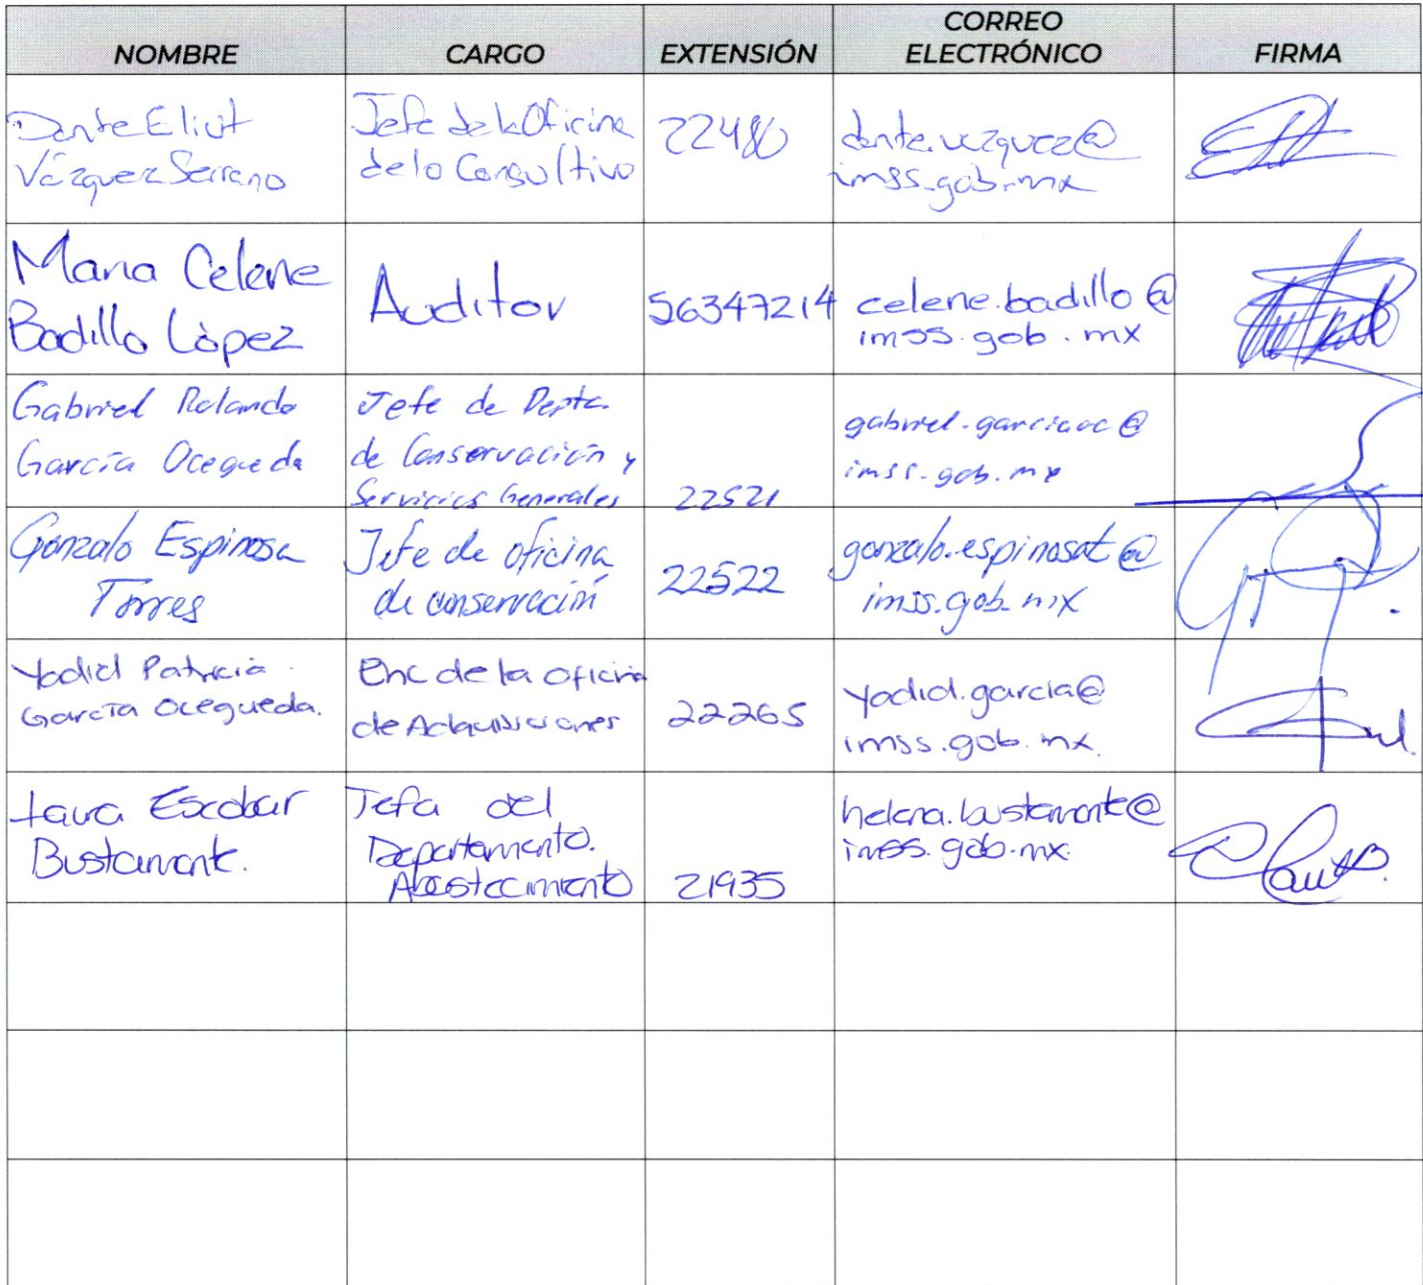 NOMBRE CARGO EXTENSIÓN CORREO ELECTRÓNICO FIRMA
Dante Eliut
Vázquez Serrano
Jefe de la Oficina
de lo Consultivo
22480
dante.vazquez@
imss.gob.mx
Maria Celene
Badillo López
Auditor
56347214
celene.badillo@
imss.gob.mx
Gabriel Rolando
García Ocegueda
Jefe de Depto.
de Conservación y
Servicios Generales
22521
gabriel.garciaoc@
imss.gob.mx
Gonzalo Espinosa
Torres
Jefe de oficina
de conservación
22522
gonzalo.espinosat@
imss.gob.mx
Yadid Patricia
García Ocegueda.
Enc de la oficina
de Adquisiciones
22265
yadid.garcia@
imss.gob.mx.
Escobar
Bustamante.
Jefa del
Departamento.
Abastecimiento
21935
helena.bustamante@
imss.gob.mx.